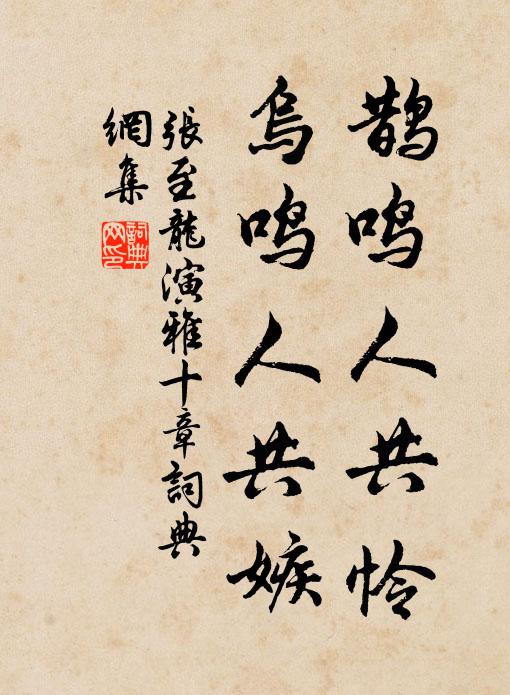 鹊鸣人共怜
乌鸣人共嫉
張至龍演雅十章詞典
網集
詞典
网印